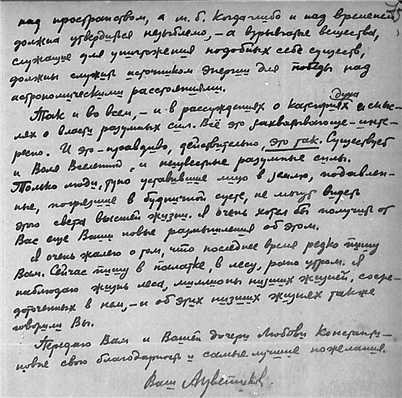 над пространством, а м.б. когда-либо и над временем
должна утвердиться незыблемо, – а взрывчатые вещества,
служащие для уничтожения подобных себе существ,
должны служить источником энергии для победы над
астрономическими расстояниями.
Так и во всем, – и в рассуждениях о категориях духа
лех о власти разумных сил. Всё это захватывающе-инте-
ресно. И это – правдиво, действительно, это так. Существует
и Воля Вселенной, и неизвестные разумные силы.
Только люди, тупо уставившие лицо в землю, подавлен-
ные, погрязшие в будничной суете, не могут видеть
этого света высшей жизни. Я очень хотел бы получить от
Вас еще Ваши новые размышления об этом.
Я очень жалею о том, что последнее время редко пишу
Вам. Сейчас пишу в палатке, в лесу, рано утром. Я
наблюдаю жизнь леса, миллионы низших жизней, сосре-
доточенных в нем, – и об этих низших жизнях также
говорили Вы.
Передаю Вам и Вашей дочери Любови Константи-
новне свою благодарность и самые лучшие пожелания.
Ваш